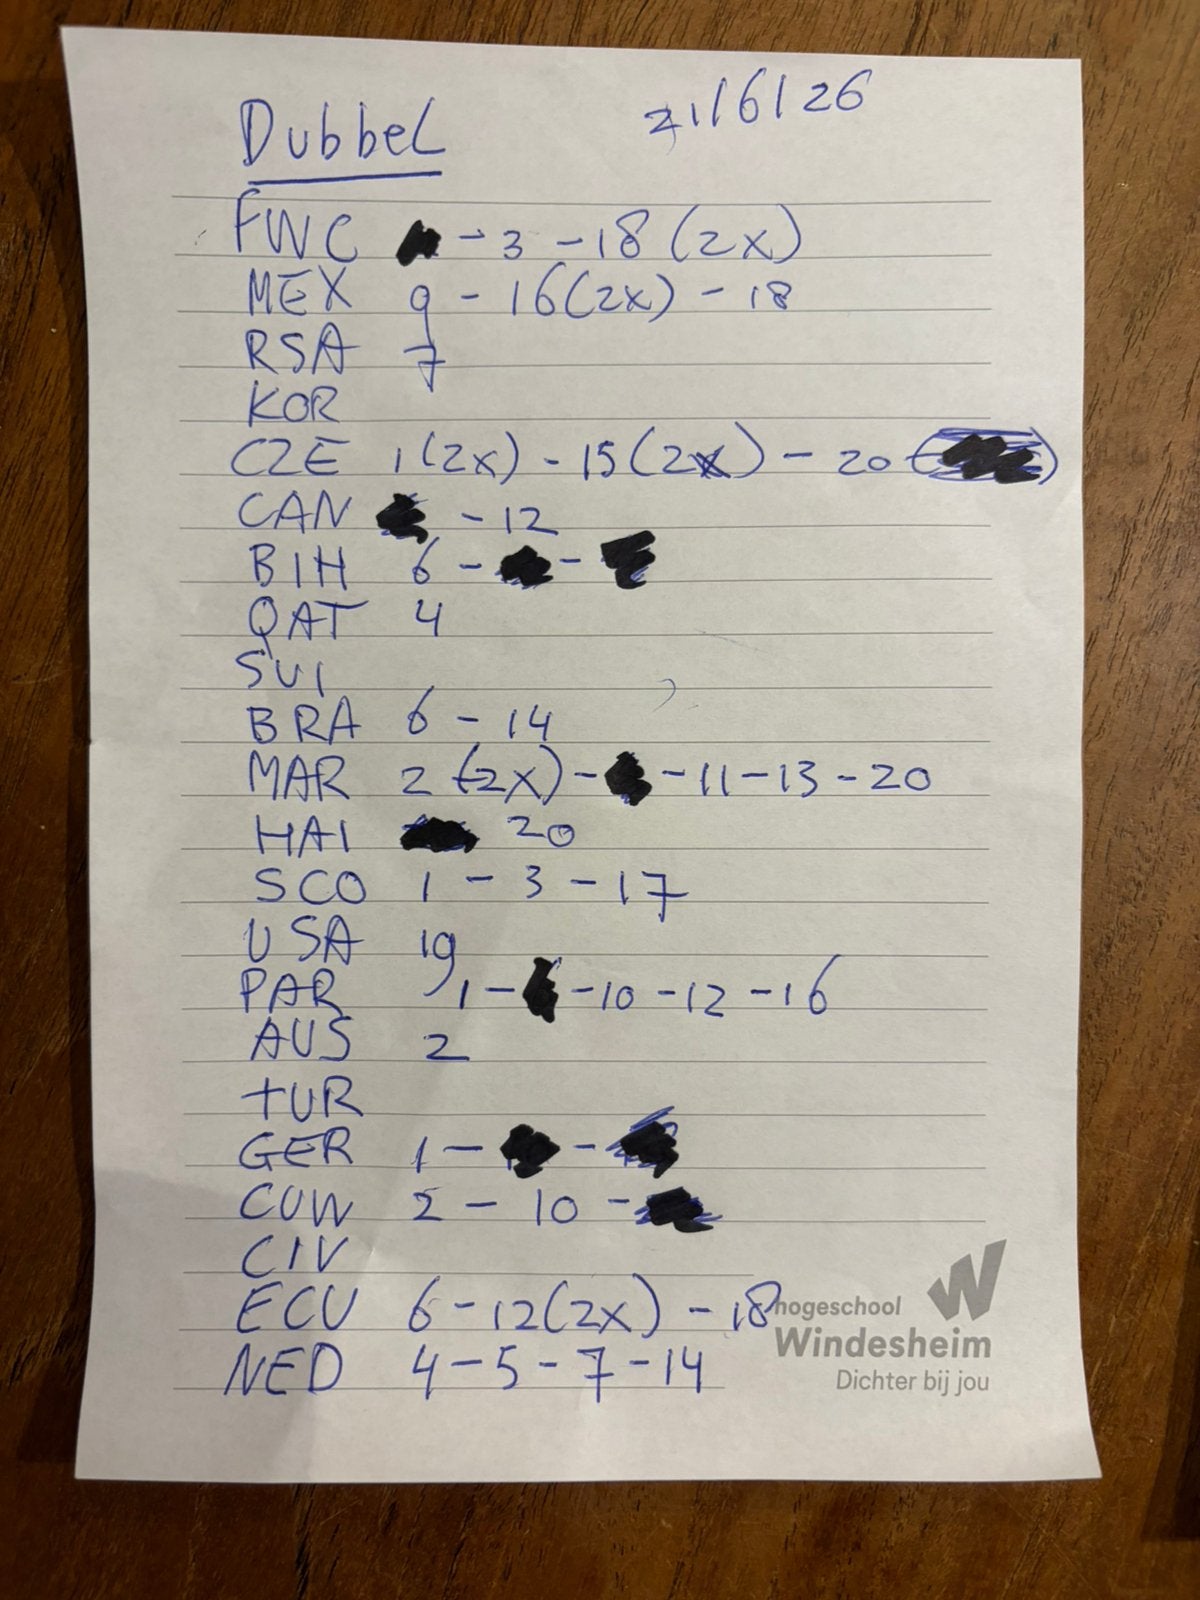 Dubbel
21/6/26
FWC - 3 - 18 (2x)
MEX 9 - 16 (2x) - 18
RSA 7
KOR
CZE 1 (2x) - 15 (2x) - 20
CAN - 12
BIH 6 - -
QAT 4
SUI
BRA 6 - 14
MAR 2 (2x) - - 11 - 13 - 20
HAI 20
SCO 1 - 3 - 17
USA 19
PAR 1 - - 10 - 12 - 16
AUS 2
TUR
GER 1 - -
CUW 2 - 10 -
CIV
ECU 6 - 12 (2x) - 18
NED 4 - 5 - 7 - 14
hogeschool
Windesheim
Dichter bij jou